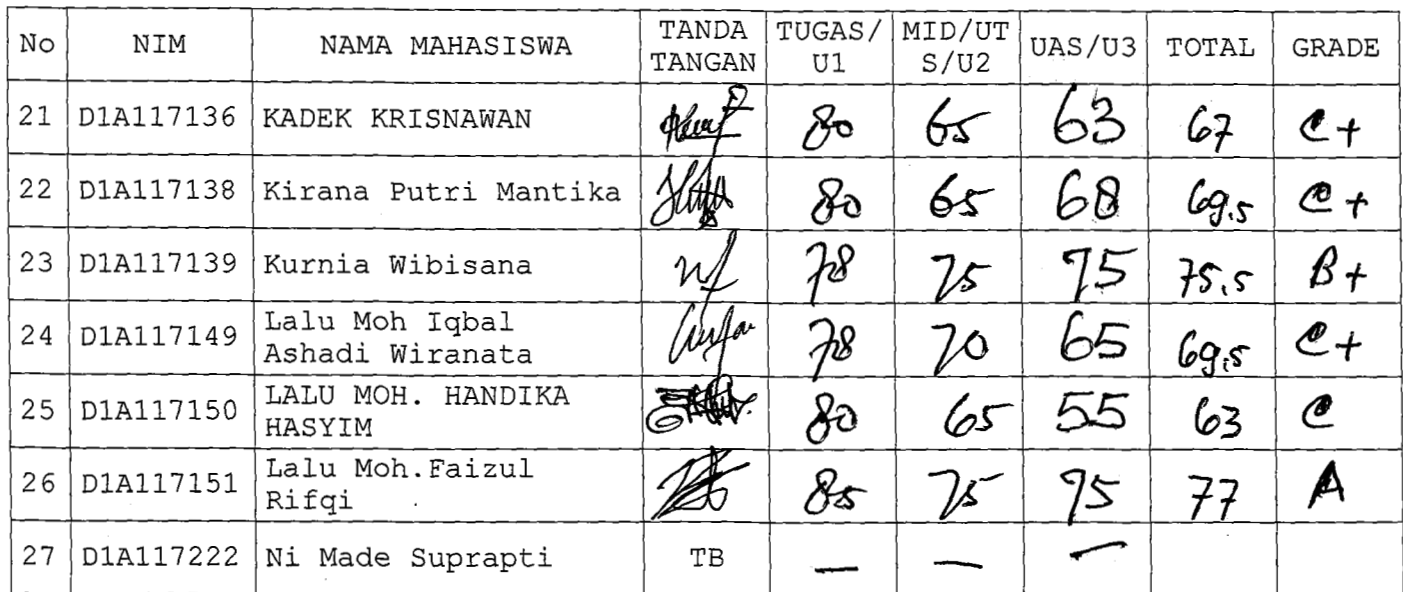 No NIM NAMA MAHASISWA TANDA TANGAN TUGAS/U1 MID/UTS/U2 UAS/U3 TOTAL GRADE
21 D1A117136 KADEK KRISNAWAN 80 65 63 67 C+
22 D1A117138 Kirana Putri Mantika 80 65 68 69.5 C+
23 D1A117139 Kurnia Wibisana 78 75 75 75.5 B+
24 D1A117149 Lalu Moh Iqbal Ashadi Wiranata 78 70 65 69.5 C+
25 D1A117150 LALU MOH. HANDIKA HASYIM 80 65 55 63 C
26 D1A117151 Lalu Moh.Faizul Rifqi 85 75 75 77 A
27 D1A117222 Ni Made Suprapti TB — — —